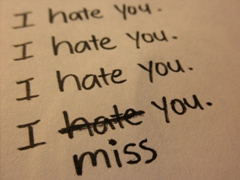 I hate you.
I hate you.
I hate you.
I hate you.
miss